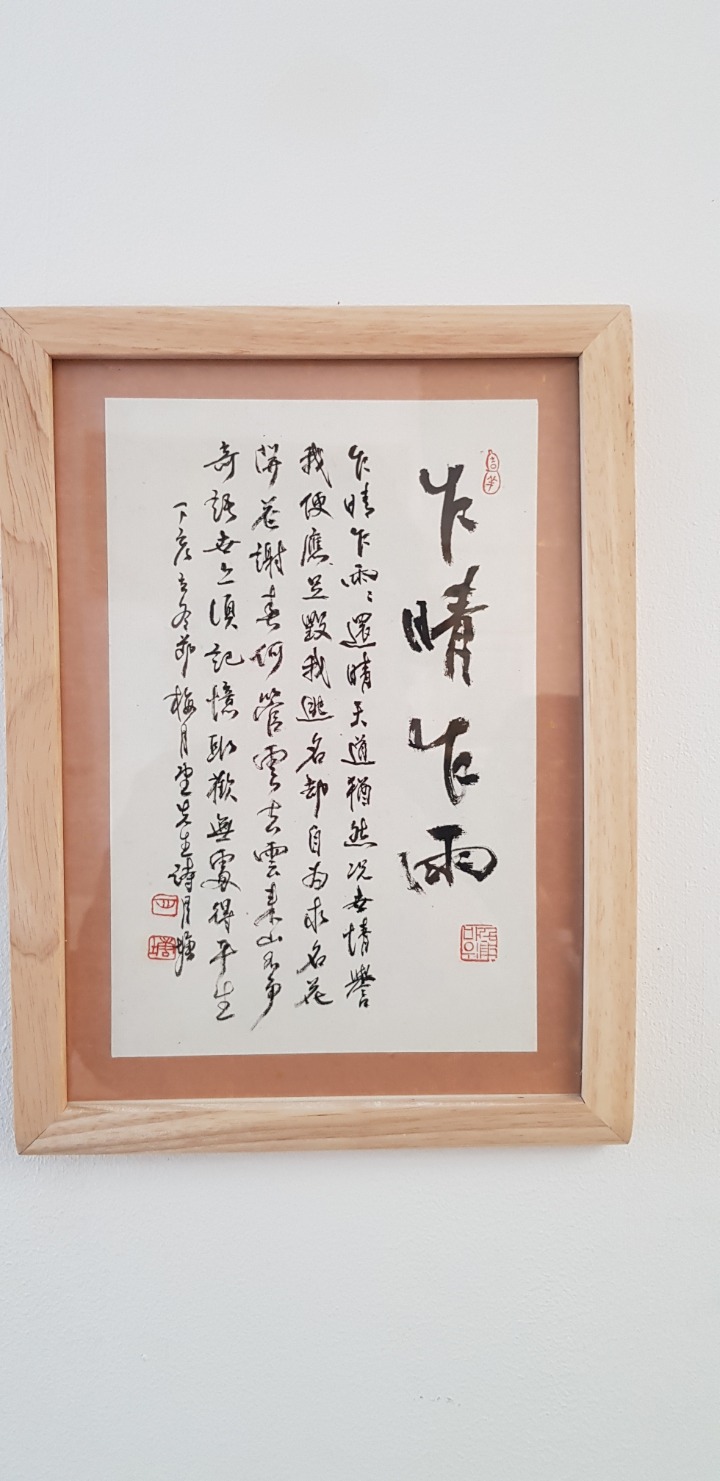 乍晴乍雨
乍晴乍雨〻還晴天道猶然况世情譽
我便應是毀我逃名却自為求名花
開花謝春何管雲去雲来山不争
寄語世上須記憶取歡無處得平生
丁亥立冬節 梅月堂先生詩 月塘